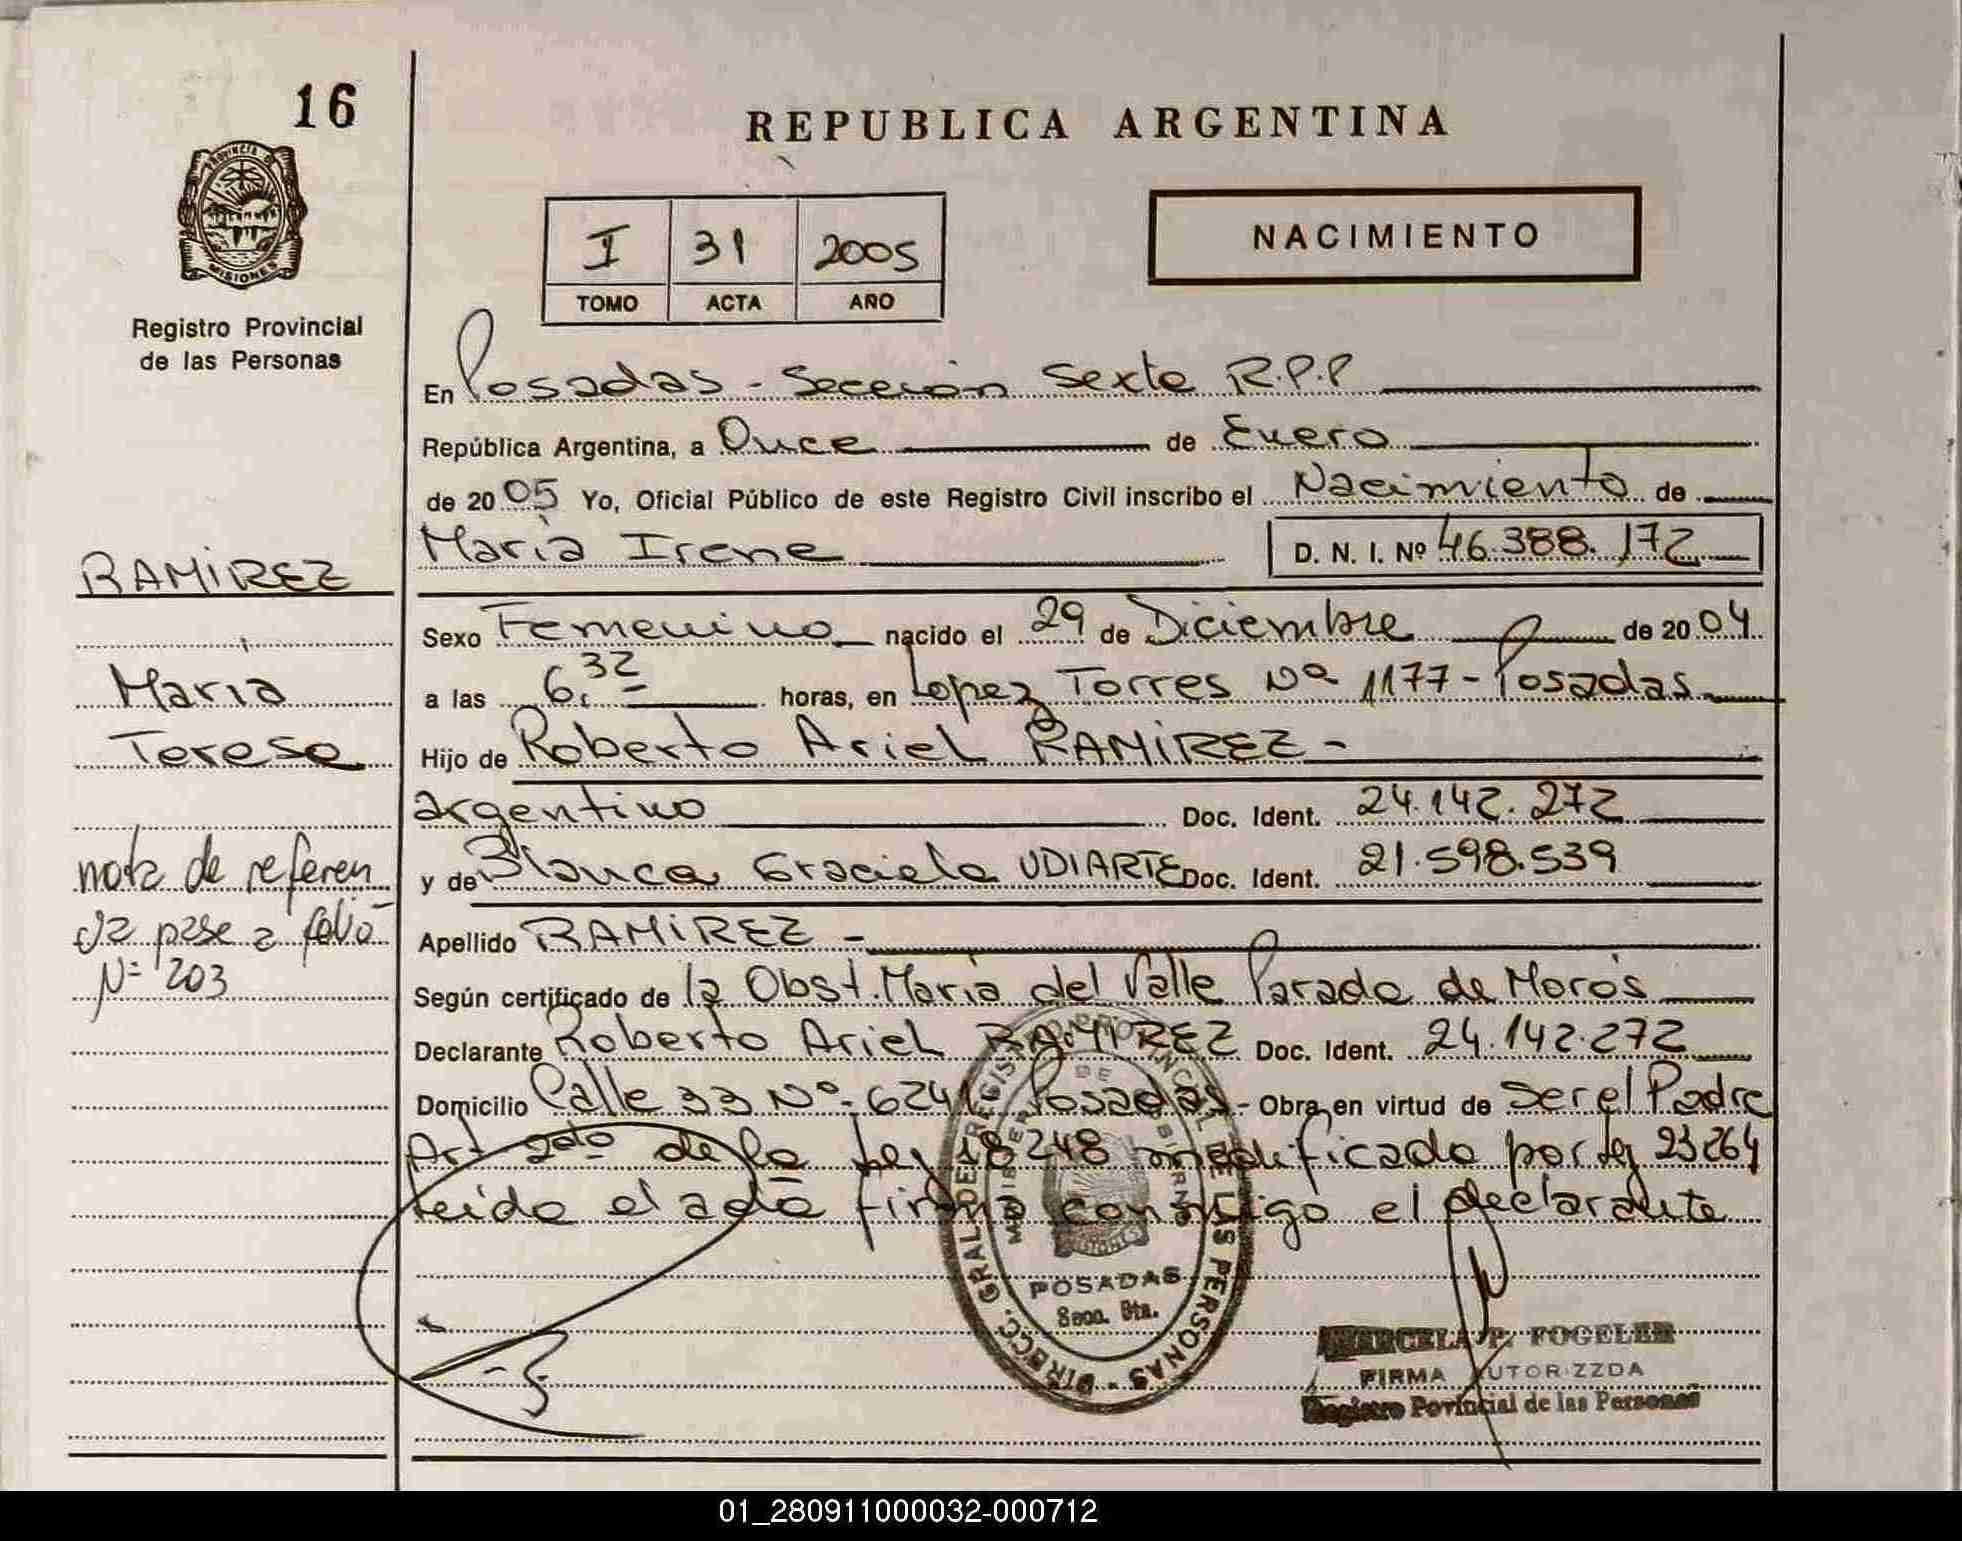 16
REPUBLICA ARGENTINA
PROVINCIA DE
MISIONES
Registro Provincial
de las Personas
I 31 2005
TOMO ACTA AÑO
NACIMIENTO
En Posadas - Sección Sexta R.P.P
República Argentina, a Once de Enero
de 2005 Yo, Oficial Público de este Registro Civil inscribo el Nacimiento de
Maria Irene D. N. I. Nº 46.388.172
RAMIREZ
Maria
Teresa
nota de referen
cia pase a folio
N= 203
Sexo Femenino nacido el 29 de Diciembre de 2004
a las 6,32 horas, en Lopez Torres Nº 1177 - Posadas
Hijo de Roberto Ariel RAMIREZ -
argentino Doc. Ident. 24.142.272
y de Blanca Graciela UDIARTE Doc. Ident. 21.598.539
Apellido RAMIREZ -
Según certificado de la Obst. Maria del Valle Parada de Moros
Declarante Roberto Ariel RAMIREZ Doc. Ident. 24.142.272
Domicilio Calle 33 Nº 6241 Posadas - Obra en virtud de ser el Padre
Art 2do de la Ley 18248 modificado por ley 23264
leida el acta firma conmigo el declarante
DIRECC. GRAL. DE REGISTRO PROVINCIAL DE LAS PERSONAS
MINISTERIO DE GOBIERNO
POSADAS
Secc. 6ta.
MARCELA P. FOGELER
FIRMA AUTORIZZDA
Registro Povincial de las Personas
01_280911000032-000712